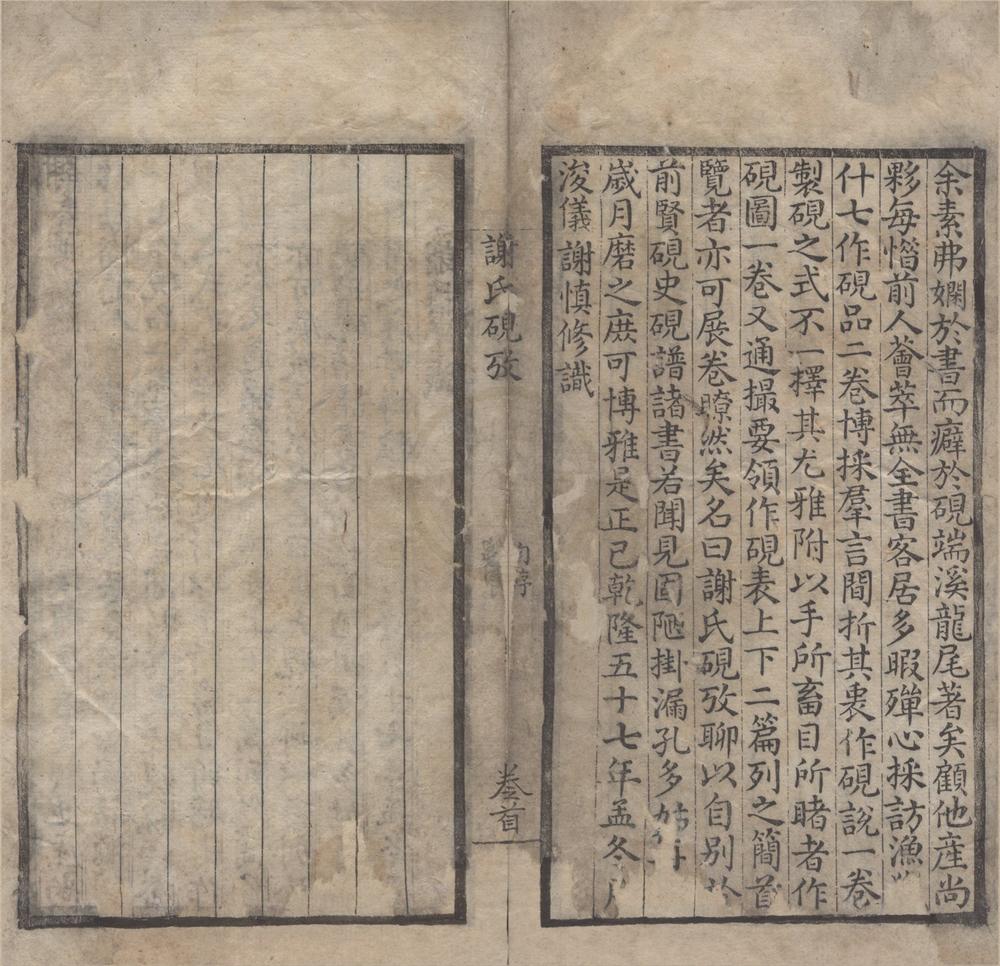 余素弗嫻於書而癖於硯端溪龍尾著矣顧他產尚
夥每惜前人薈萃無全書客居多暇殫心採訪漁
什七作硯品二卷博採羣言間折其衷作硯說一卷
製硯之式不一擇其尤雅附以手所畜目所睹者作
硯圖一卷又通撮要領作硯表上下二篇列之簡首
覽者亦可展卷瞭然矣名曰謝氏硯攷聊以自別於
前賢硯史硯譜諸書若聞見固陋掛漏孔多
歲月磨之庶可博雅是正已乾隆五十七年孟冬月
浚儀謝慎修識
謝氏硯攷
自序
卷首